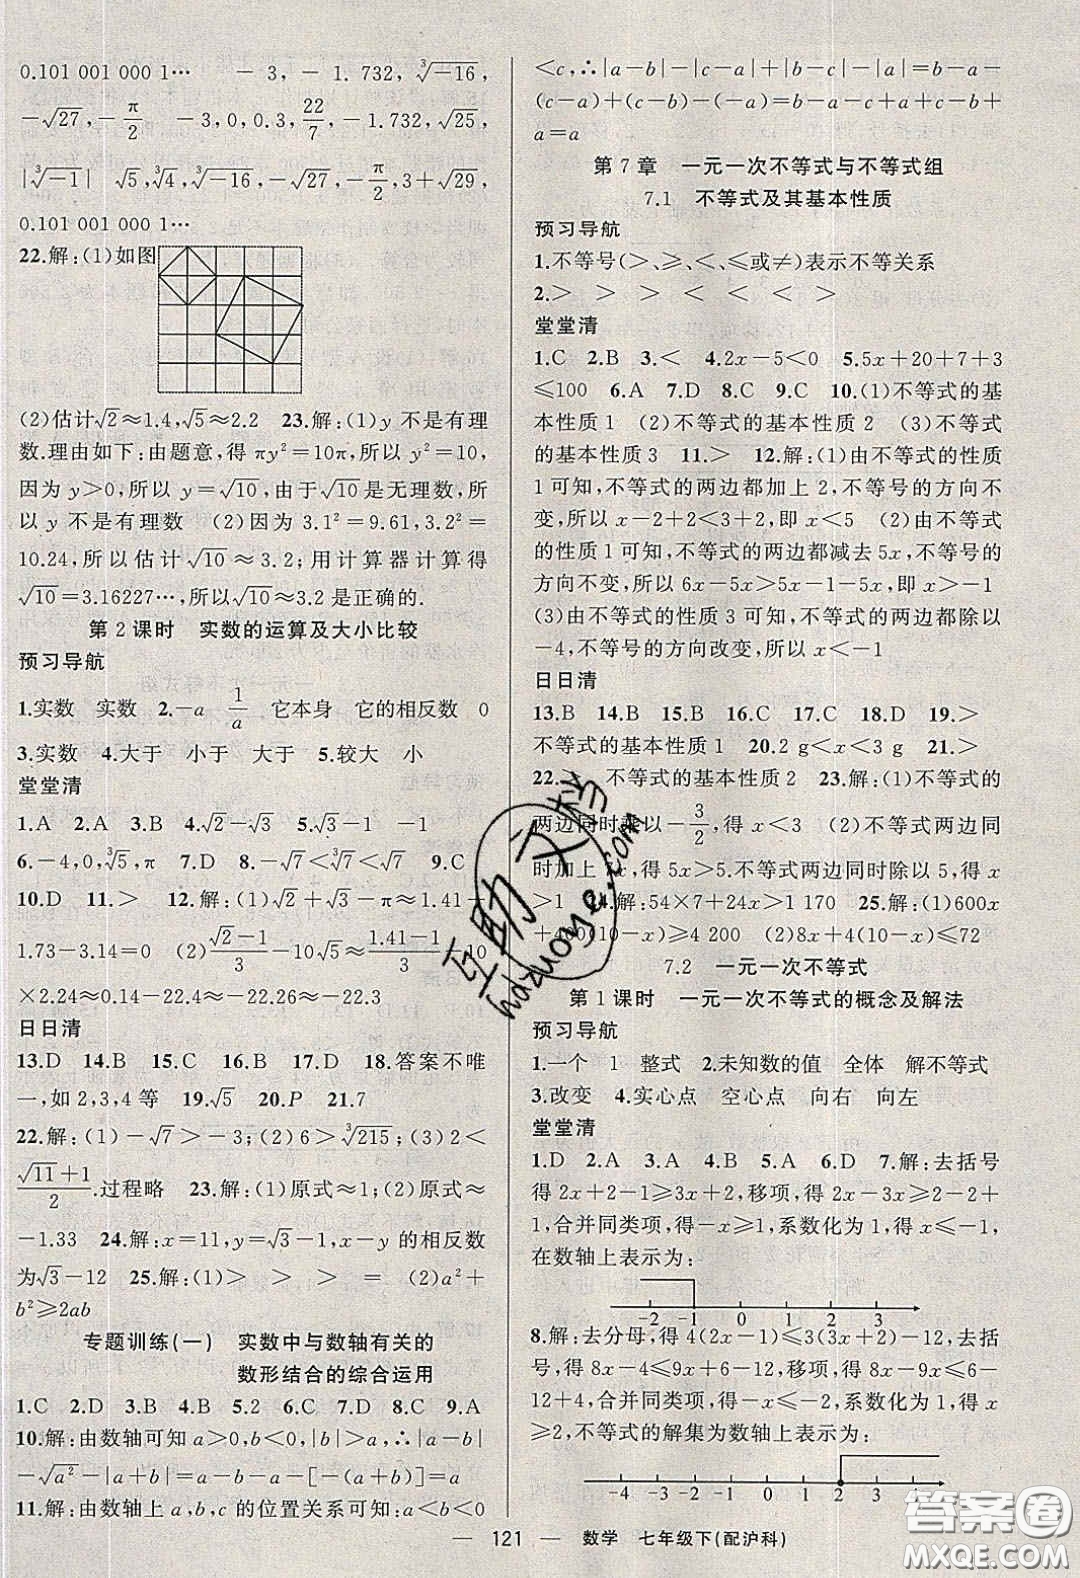 0.101 001 000 1… －3，－1.732，∛−16，
－√27，－π/2 －3,0,0.3，22/7，－1.732，√25，
|∛−1| √5，∛4，∛−16，－√27，－π/2，3＋√29，
0.101 001 000 1…
22.解：(1)如图
(2)估计√2≈1.4，√5≈2.2 23.解：(1)y 不是有理
数.理由如下：由题意，得 πy²＝10π，所以 y²＝10，
因为 y＞0，所以 y＝√10，由于√10是无理数，所
以 y 不是有理数 (2)因为 3.1²＝9.61，3.2²＝
10.24，所以估计√10≈3.2；用计算器计算得
√10＝3.16227…，所以√10≈3.2 是正确的.
第 2 课时 实数的运算及大小比较
预习导航
1.实数 实数 2.－a 1/a 它本身 它的相反数 0
3.实数 4.大于 小于 大于 5.较大 小
堂堂清
1.A 2.A 3.B 4.√2－√3 5.√3－1 －1
6.－4,0,∛5,π 7.D 8.－√7＜∛7＜√7 9.C
10.D 11.＞ 12.解：(1)√2＋√3－π≈1.41＋
1.73－3.14＝0 (2)(√2－1)/3－10√5≈(1.41－1)/3－10
×2.24≈0.14－22.4≈－22.3
日日清
13.D 14.B 15.C 16.B 17.D 18.答案不唯
一，如 2,3,4 等 19.√5 20.P 21.7
22.解：(1)－√7＞－3；(2)6＞∛215；(3)2＜
(√11＋1)/2.过程略 23.解：(1)原式≈1；(2)原式≈
－1.33 24.解：x＝11，y＝√3－1，x－y 的相反数
为√3－12 25.解：(1)＞ ＞ ＞ ＝ (2)a²＋
b²≥2ab
专题训练(一) 实数中与数轴有关的
数形结合的综合运用
1.C 2.D 3.B 4.B 5.2 6.C 7.D 8.C 9.A
10.解：由数轴可知 a＞0，b＜0，|b|＞a，∴|a－b|
－√a²－|a＋b|＝a－b－a－[－(a＋b)]＝a
11.解：由数轴上 a，b，c 的位置关系可知：a＜b＜0
＜c，∴|a－b|－|c－a|＋|b－c|－|a|＝b－a－
(c－a)＋(c－b)－(－a)＝b－a－c＋a＋c－b＋
a＝a
第 7 章 一元一次不等式与不等式组
7.1 不等式及其基本性质
预习导航
1.不等号(＞、≥、＜、≤或≠)表示不等关系
2.＞ ＞ ＞ ＜ ＜ ＜ ＞
堂堂清
1.C 2.B 3.＜ 4.2x－5＜0 5.5x＋20＋7＋3
≤100 6.A 7.D 8.C 9.C 10.(1)不等式的基
本性质 1 (2)不等式的基本性质 2 (3)不等式
的基本性质 3 11.＞ 12.解：(1)由不等式的性质
1 可知，不等式的两边都加上 2，不等号的方向不
变，所以 x－2＋2＜3＋2，即 x＜5 (2)由不等式
的性质 1 可知，不等式的两边都减去 5x，不等号的
方向不变，所以 6x－5x＞5x－1－5x，即 x＞－1
(3)由不等式的性质 3 可知，不等式的两边都除以
－4，不等号的方向改变，所以 x＜－1
日日清
13.B 14.B 15.B 16.C 17.C 18.D 19.＞
不等式的基本性质 1 20.2 g＜x＜3 g 21.＞
22.＞ 不等式的基本性质 2 23.解：(1)不等式的
两边同时乘以－3/2，得 x＜3 (2)不等式两边同
时加上 7x，得 5x＞5.不等式两边同时除以 5，得 x
＞1 24.解：54×7＋24x＞1 170 25.解：(1)600x
＋400(10－x)≥4 200 (2)8x＋4(10－x)≤72
7.2 一元一次不等式
第 1 课时 一元一次不等式的概念及解法
预习导航
1.一个 1 整式 2.未知数的值 全体 解不等式
3.改变 4.实心点 空心点 向右 向左
堂堂清
1.D 2.A 3.A 4.B 5.A 6.D 7.解：去括号
得 2x＋2－1≥3x＋2，移项，得 2x－3x≥2－2＋
1，合并同类项，得－x≥1，系数化为 1，得 x≤－1，
在数轴上表示为：
－2 －1 0 1 2 3 4
8.解：去分母，得 4(2x－1)≤3(3x＋2)－12，去括
号，得 8x－4≤9x＋6－12，移项，得 8x－9x≤6－
12＋4，合并同类项，得－x≤－2，系数化为 1，得 x
≥2，不等式的解集为数轴上表示为：
－4 －3 －2 －1 0 1 2 3 4
— 121 — 数学 七年级下(配沪科)
互助文档
hdzuoye.com
答案圈
MXQE.COM